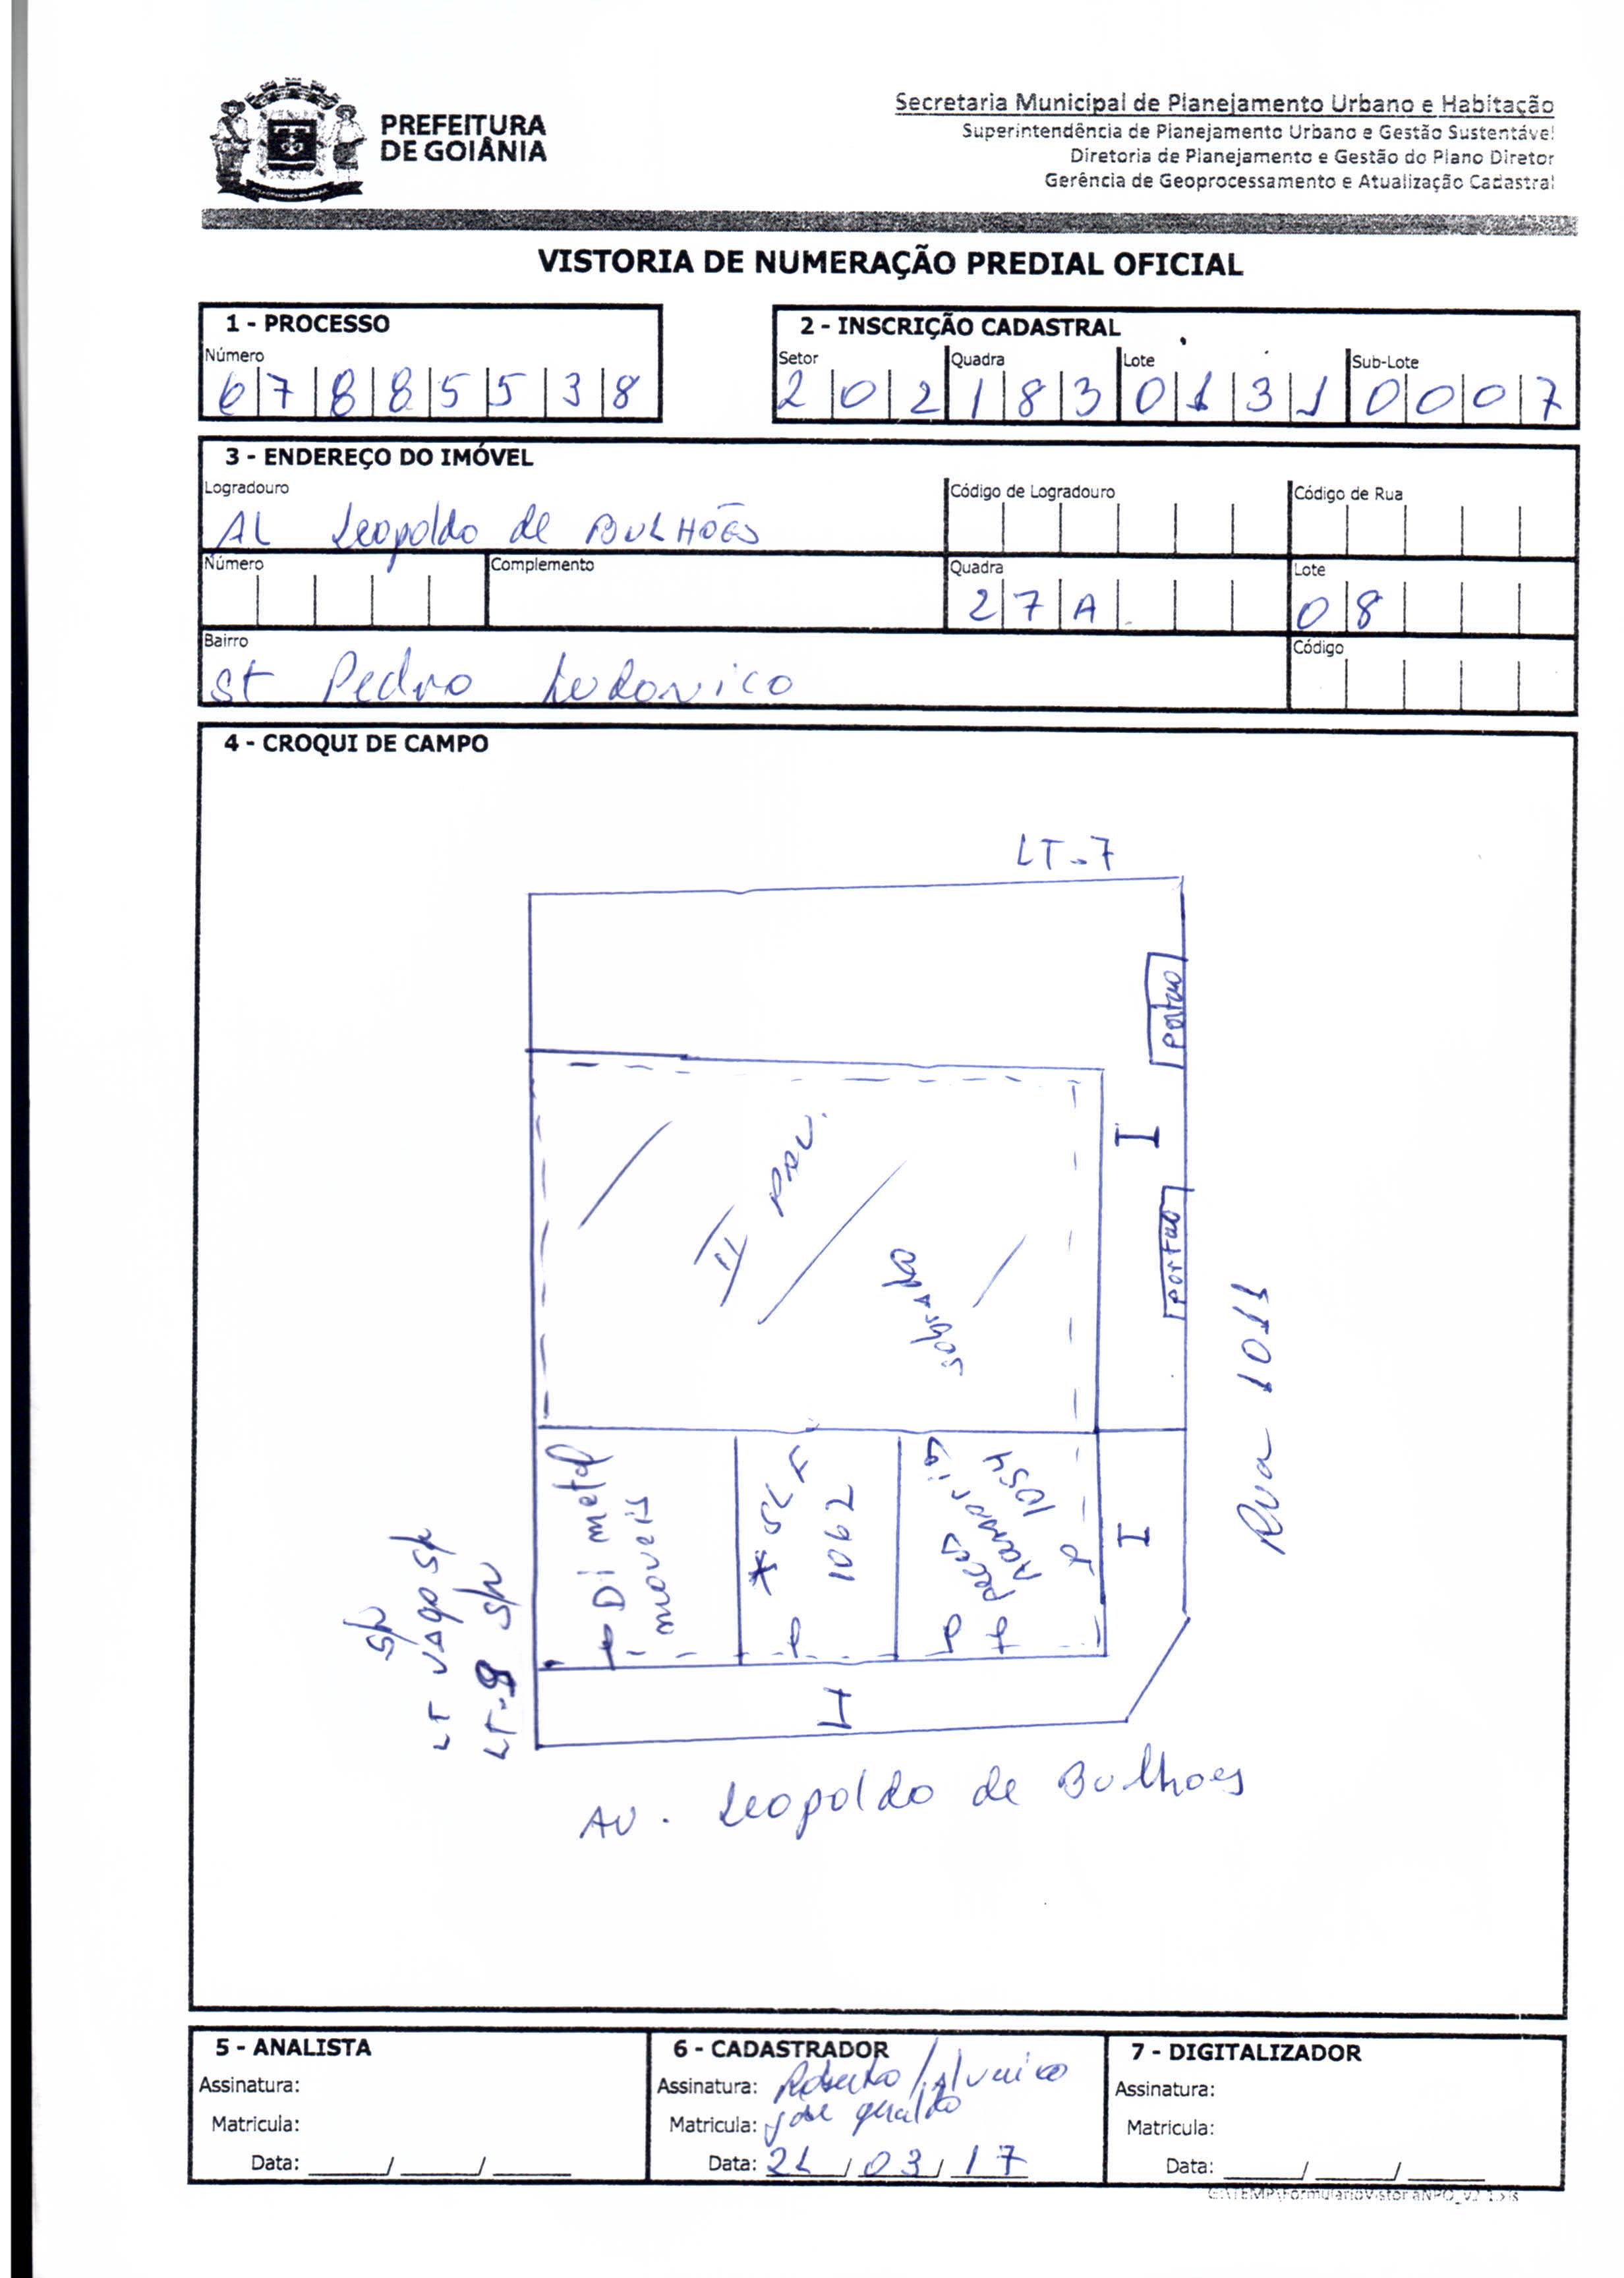 PREFEITURA
DE GOIÂNIA
Secretaria Municipal de Planejamento Urbano e Habitação
Superintendência de Planejamento Urbano e Gestão Sustentável
Diretoria de Planejamento e Gestão do Plano Diretor
Gerência de Geoprocessamento e Atualização Cadastral
VISTORIA DE NUMERAÇÃO PREDIAL OFICIAL
1 - PROCESSO
Número
67885538
2 - INSCRIÇÃO CADASTRAL
Setor Quadra Lote Sub-Lote
202 183 0131 0007
3 - ENDEREÇO DO IMÓVEL
Logradouro Código de Logradouro Código de Rua
AL Leopoldo de BULHÕES
Número Complemento Quadra Lote
27A 08
Bairro Código
St Pedro Ludovico
4 - CROQUI DE CAMPO
LT-7
portao
II pav.
sobrado
portao
Rua 1011
Di metal
moveis
1062
pecas
1054
LT VAGO S/N
S/N
LT-9 S/N
AV. Leopoldo de Bulhoes
5 - ANALISTA
Assinatura:
Matricula:
Data: ____/____/____
6 - CADASTRADOR
Assinatura: Roberto /
Matricula: jose geraldo
Data: 21/03/17
7 - DIGITALIZADOR
Assinatura:
Matricula:
Data: ____/____/____